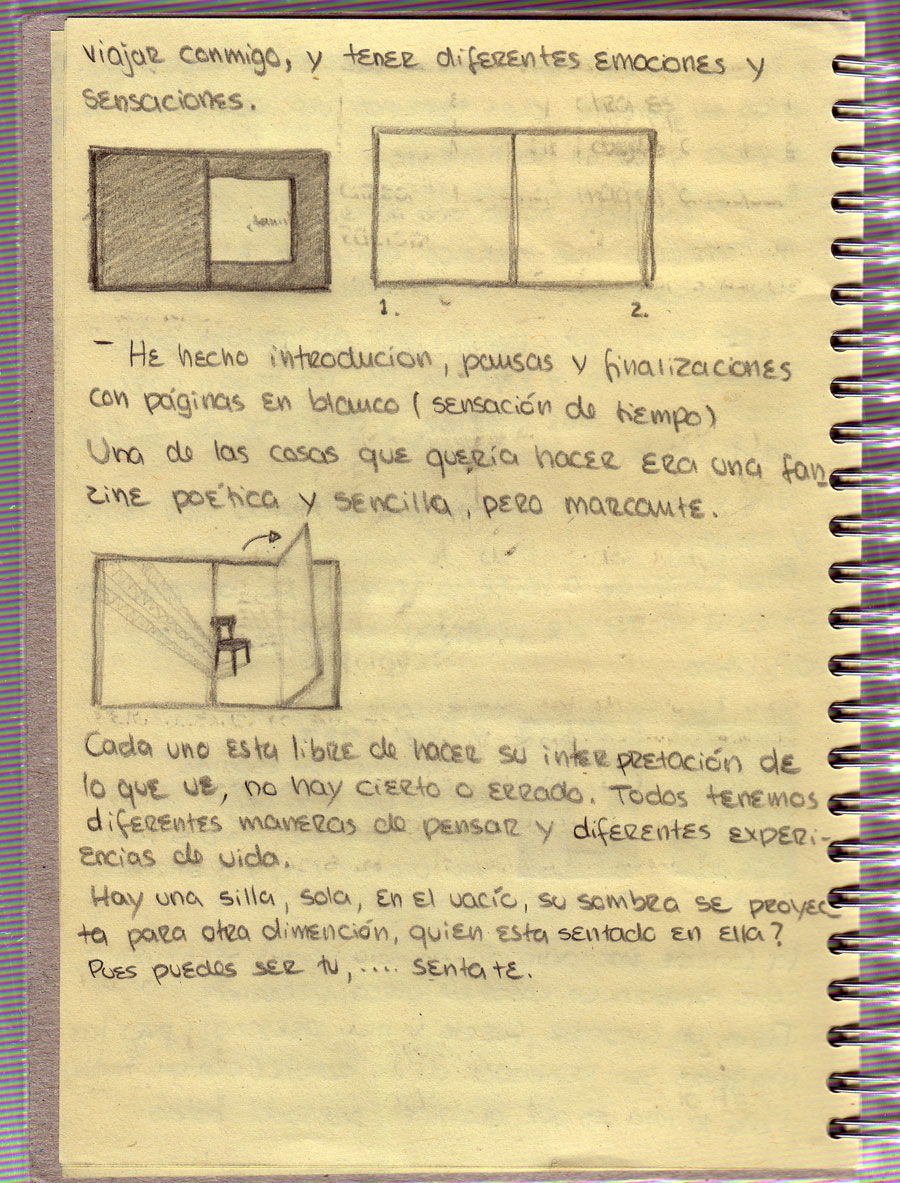 viajar conmigo, y tener diferentes emociones y
sensaciones.
1. 2.
- He hecho introducion, pausas y finalizaciones
con páginas en blanco (sensación de tiempo)
Una de las cosas que quería hacer era una fan-
zine poética y sencilla, pero marcante.
Cada uno esta libre de hacer su interpretación de
lo que ve, no hay cierto o errado. Todos tenemos
diferentes maneras de pensar y diferentes experi-
encias de vida.
Hay una silla, sola, en el vacío, su sombra se proyec-
ta para otra dimención, quien esta sentado en ella?
Pues puedes ser tu, .... sentate.